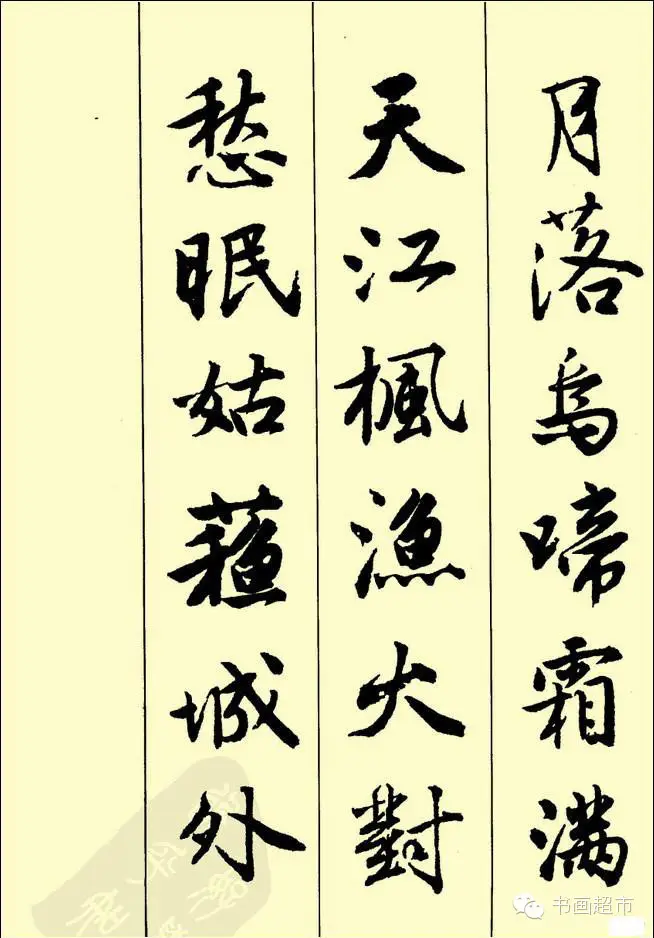 月落烏啼霜满
天江楓漁火對
愁眠姑蘓城外
书画超市